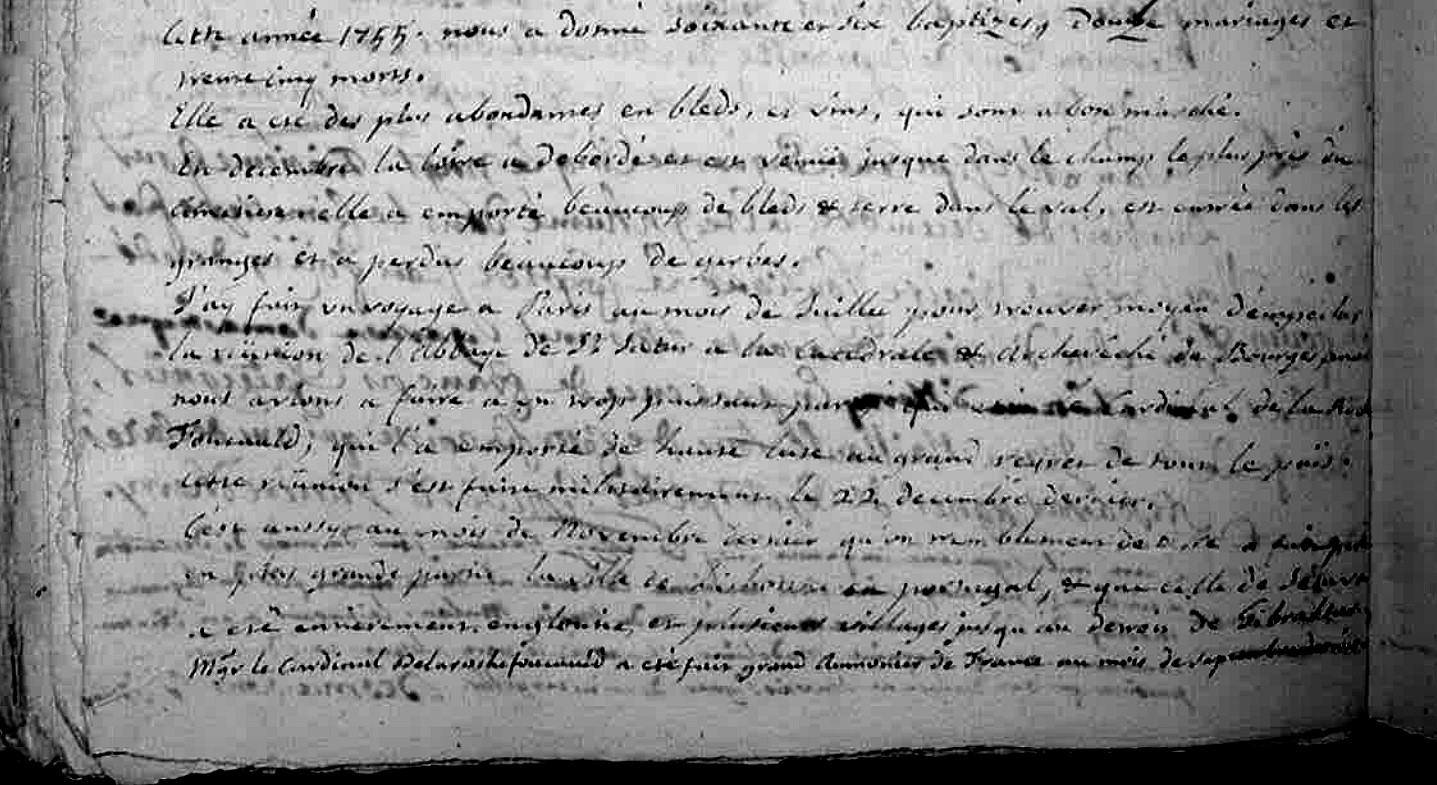 Cette année 1755. nous a donné soixante et six baptizés, douze mariages et
trente cinq morts.
Elle a eté des plus abondantes en bleds, et vins, qui sont a bon marché.
En decembre la loire a debordé et est venüe jusque dans le champ le plus près du
elle a emporté beaucoup de bleds & terre dans le val, est entrée dans les
granges et a perdus beaucoup de gerbes.
J'ay fait un voyage a Paris au mois de Juillet pour trouver moyen d'empecher
la reünion de l'Abbaye de St Satur a la Catedrale & Archevêché de Bourges
nous avions a faire a un trop puissant Cardinal de la Roche
Foucauld, qui l'a emporté de haute lute au grand regret de tout le païs.
Cette reünion s'est faite militairement le 22 decembre dernier.
C'est aussy au mois de Novembre dernier qu'un tremblement de
en plus grande partie la ville de Lisbonne en portugal, & que celle de
a eté entierement engloutie, et plusieurs villages jusqu'au detroit de Gibraltar
Mgr le Cardinal Delarochefoucauld a eté fait grand Aumonier de France au mois de